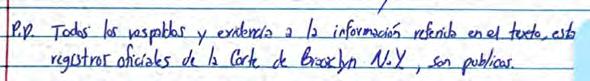 P.P. Todos los respaldos y evidencia a la información referida en el texto, esto
registros oficiales de la Corte de Brooclyn N.Y, son publicos.